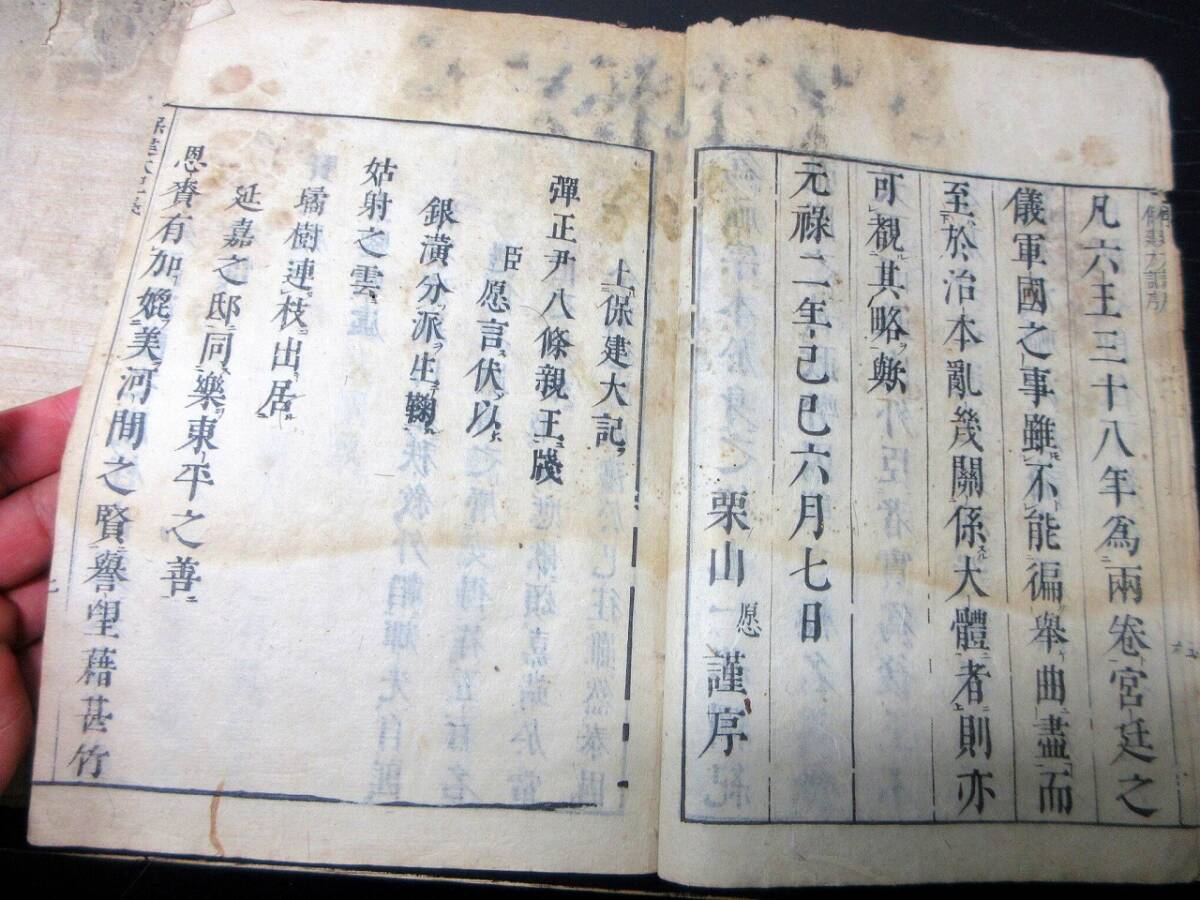 凡六王三十八年為兩卷宮廷之
儀軍國之事雖不能徧舉曲盡而
至於治本亂幾關係大體者則亦
可觀其略歟
元祿二年己巳六月七日
栗山愿謹序
上保建大記
彈正尹八條親王牋
臣愿言伏以
銀潢分派生鞠
姑射之雲
璚樹連枝出居
延嘉之邸同樂東平之善
恩賚有加媲美河間之賢譽望藉甚竹